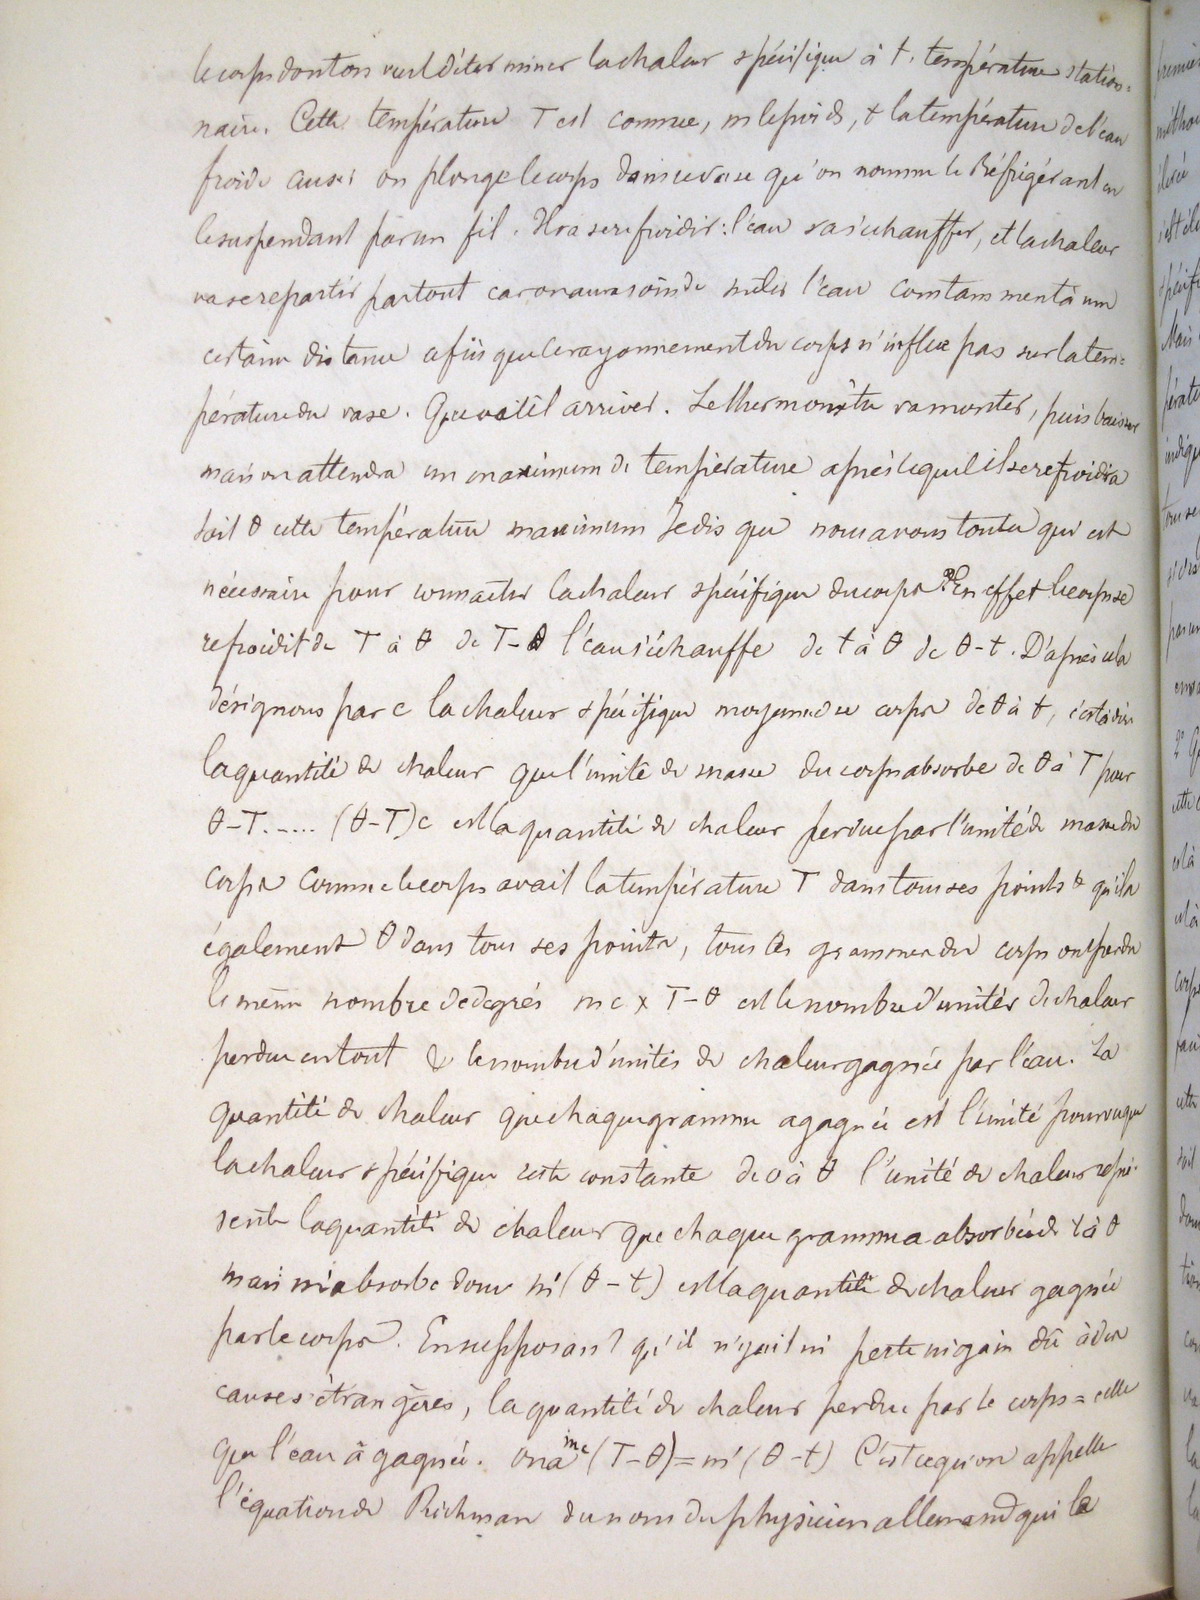 le corps dont on veut déterminer la chaleur spécifique à t. température station=
naire. Cette température T est connue, m le poids, t la température de l'eau
froide aussi on plonge le corps dans ce vase qu'on nomme le Réfrigérant en
le suspendant par un fil. Il va se refroidir: l'eau va s'échauffer, et la chaleur
va se repartir partout car on aura soin de mêler l'eau constamment à une
certaine distance afin que le rayonnement du corps n'influe pas sur la tem=
pérature du vase. Que va-t-il arriver. Le thermomètre va monter, puis baisser
mais on attendra un maximum de température après lequel il se refroidira
soit θ cette température maximum Je dis que nous avons tout ce qui est
nécessaire pour connaître la chaleur spécifique du corps. En effet le corps se
refroidit de T à θ de T-θ l'eau s'échauffe de t à θ de θ-t. D'après cela
désignons par c la chaleur spécifique moyenne du corps de θ à t, c'est à dire
la quantité de chaleur que l'unité de masse du corps absorbe de θ à T pour
θ-T...... (θ-T)c est la quantité de chaleur perdue par l'unité de masse du
corps comme le corps avait la température T dans tous ses points & qu'il a
également θ dans tous ses points, tous les grammes du corps ont perdu
le même nombre de degrés mc x T-θ est le nombre d'unités de chaleur
perdue en tout & le nombre d'unités de chaleur gagnée par l'eau. La
quantité de chaleur que chaque gramme a gagnée est l'unité pourvu que
la chaleur spécifique reste constante de 0 à θ l'unité de chaleur repré-
sente la quantité de chaleur que chaque gramme a absorbée de t à θ
mais m' absorbe donc m'(θ-t) est la quantité de chaleur gagnée
par le corps. En supposant qu'il n'y ait ni perte ni gain dû à des
causes étrangères, la quantité de chaleur perdue par le corps = celle
que l'eau a gagnée. on a mc(T-θ)=m'(θ-t) C'est ce qu'on appelle
l'équation de Richman du nom du physicien allemand qui la